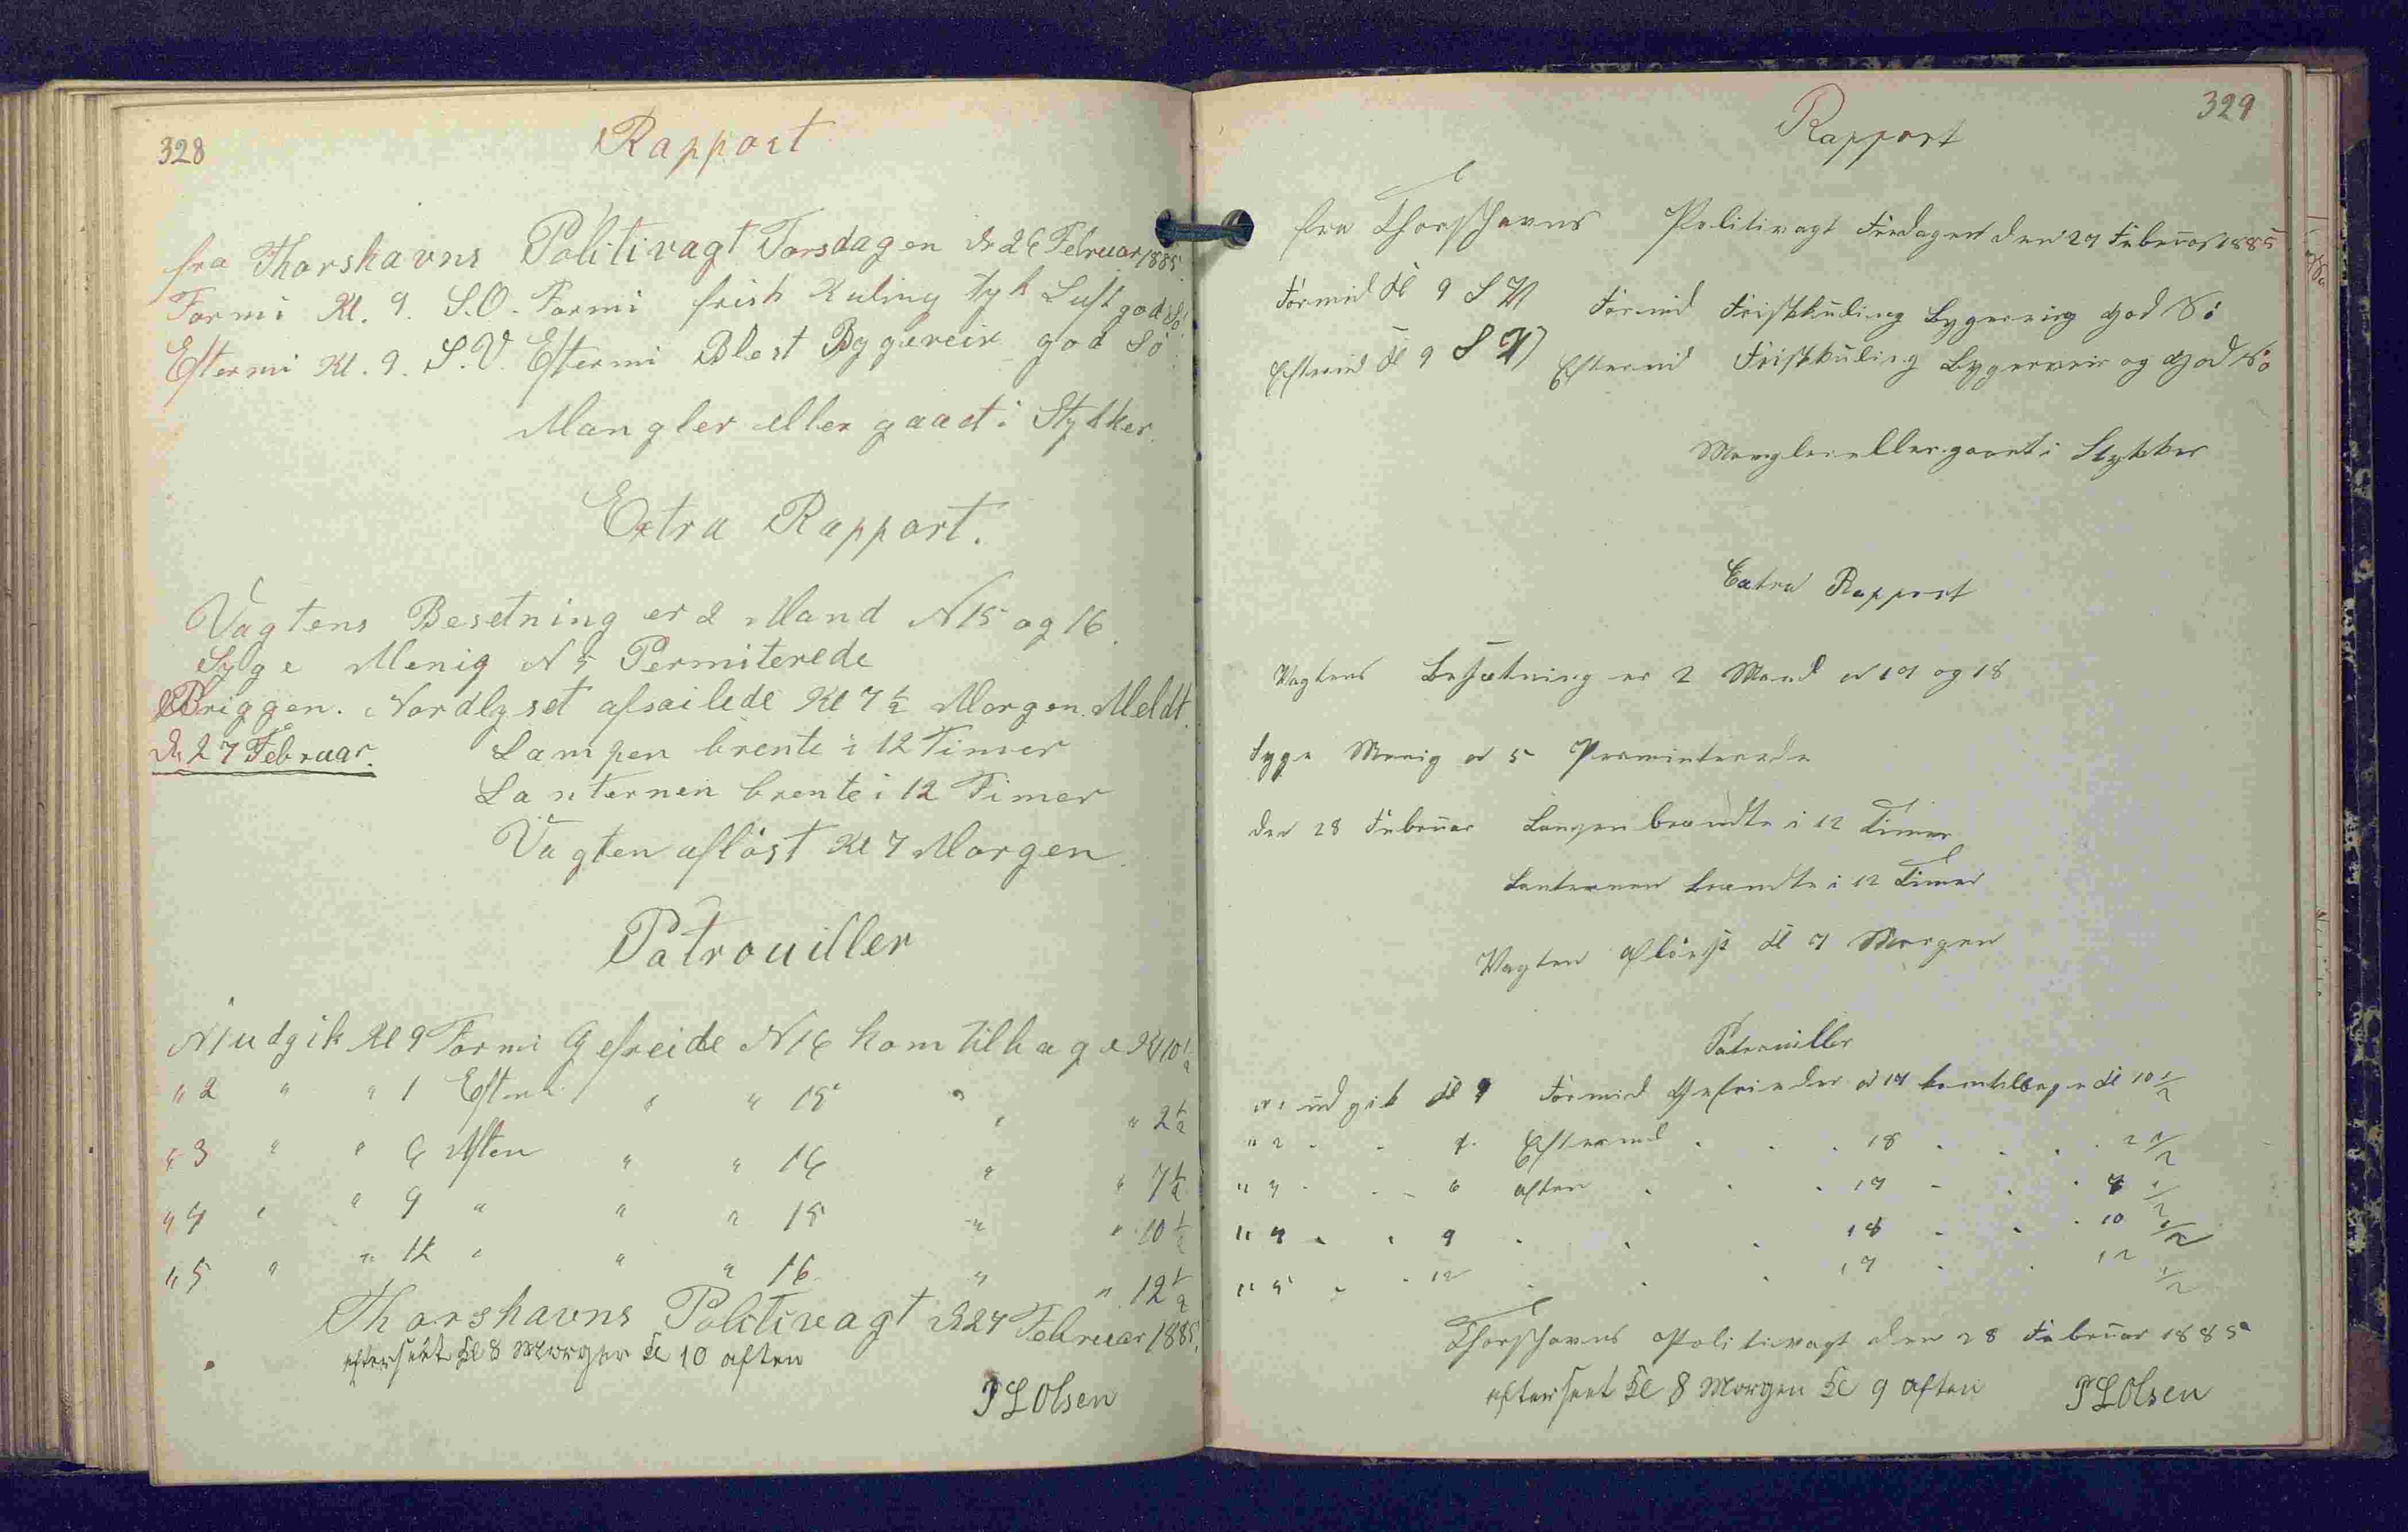 328
Rapport
fra Thorshavns Politivagt Torsdagen d 26 Februar 1885.
Formi Kl. 9. S.O. Formi frisk Kuling tyk Luft god Sö
Eftermi Kl. 9. S.V. Eftermi Blest Bygeveir god Sö
Mangler eller gaaet i Stykker.
Extra Rapport.
Vagtens Besetning er 2 Mand N 15 og 16.
Syge Menig N 5 Permiterede
Briggen. Nordlyset afseilede Kl 7 1/2 Morgen. Meldt.
d. 27 Februar. Lampen brente i 12 Timer
Lanternen brente i 12 Timer
Vagten aflöst Kl 7 Morgen.
Patrouiller
N 1 udgik Kl 9 Formi Gefreide N 16 kom tilbage Kl 10 1/2
" 2 " " 1 Efterm " " 15 " " 2 1/2
" 3 " " 6 Aften " " 16 " " 7 1/2
" 4 " " 9 " " " 15 " " 10 1/2
" 5 " " 12 " " " 16 " " 12 1/2
Thorshavns Politivagt d 27 Februar 1885.
efterseet Kl 8 Morgen Kl 10 aften
P L Olsen
329
Rapport
fra Thorshavns Politivagt Fredagen den 27 Februar 1885
Formid Kl 9 S V Formid Friskkuling Bygerveir god Sö
Eftermid Kl 9 S V Eftermid Friskkuling Bygerveir og god Sö
Mangler eller gaaet i Stykker
Extra Rapport
Vagtens Besætning er 2 Mand N 17 og 18
Syge Menig N 5 Perminterede
den 28 Februar Lampen brændte i 12 Timer
Lanternen brændte i 12 Timer
Vagten aflöst Kl 7 Morgen
Patrouiller
N 1 udgik Kl 9 Formid Gefreider N 17 kom tilbage Kl 10 1/2
" 2 " " 1 Eftermid " " 18 " " 2 1/2
" 3 " " 6 aften " " 17 " " 7 1/2
" 4 " " 9 " " " 18 " " 10 1/2
" 5 " " 12 " " " 17 " " 12 1/2
Thorshavns Politivagt den 28 Februar 1885
efterseet Kl 8 Morgen Kl 9 aften P L Olsen